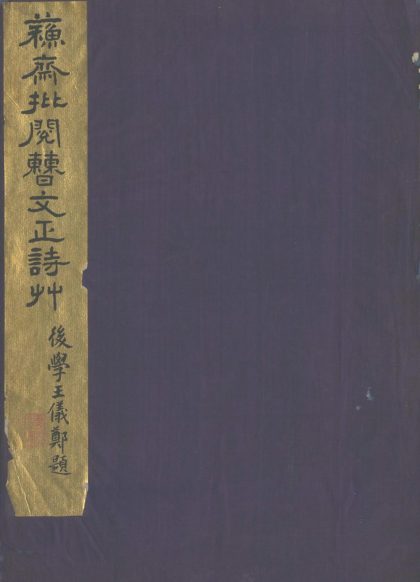 蘓齋批閱曹文正詩艸
後學王儀鄭題